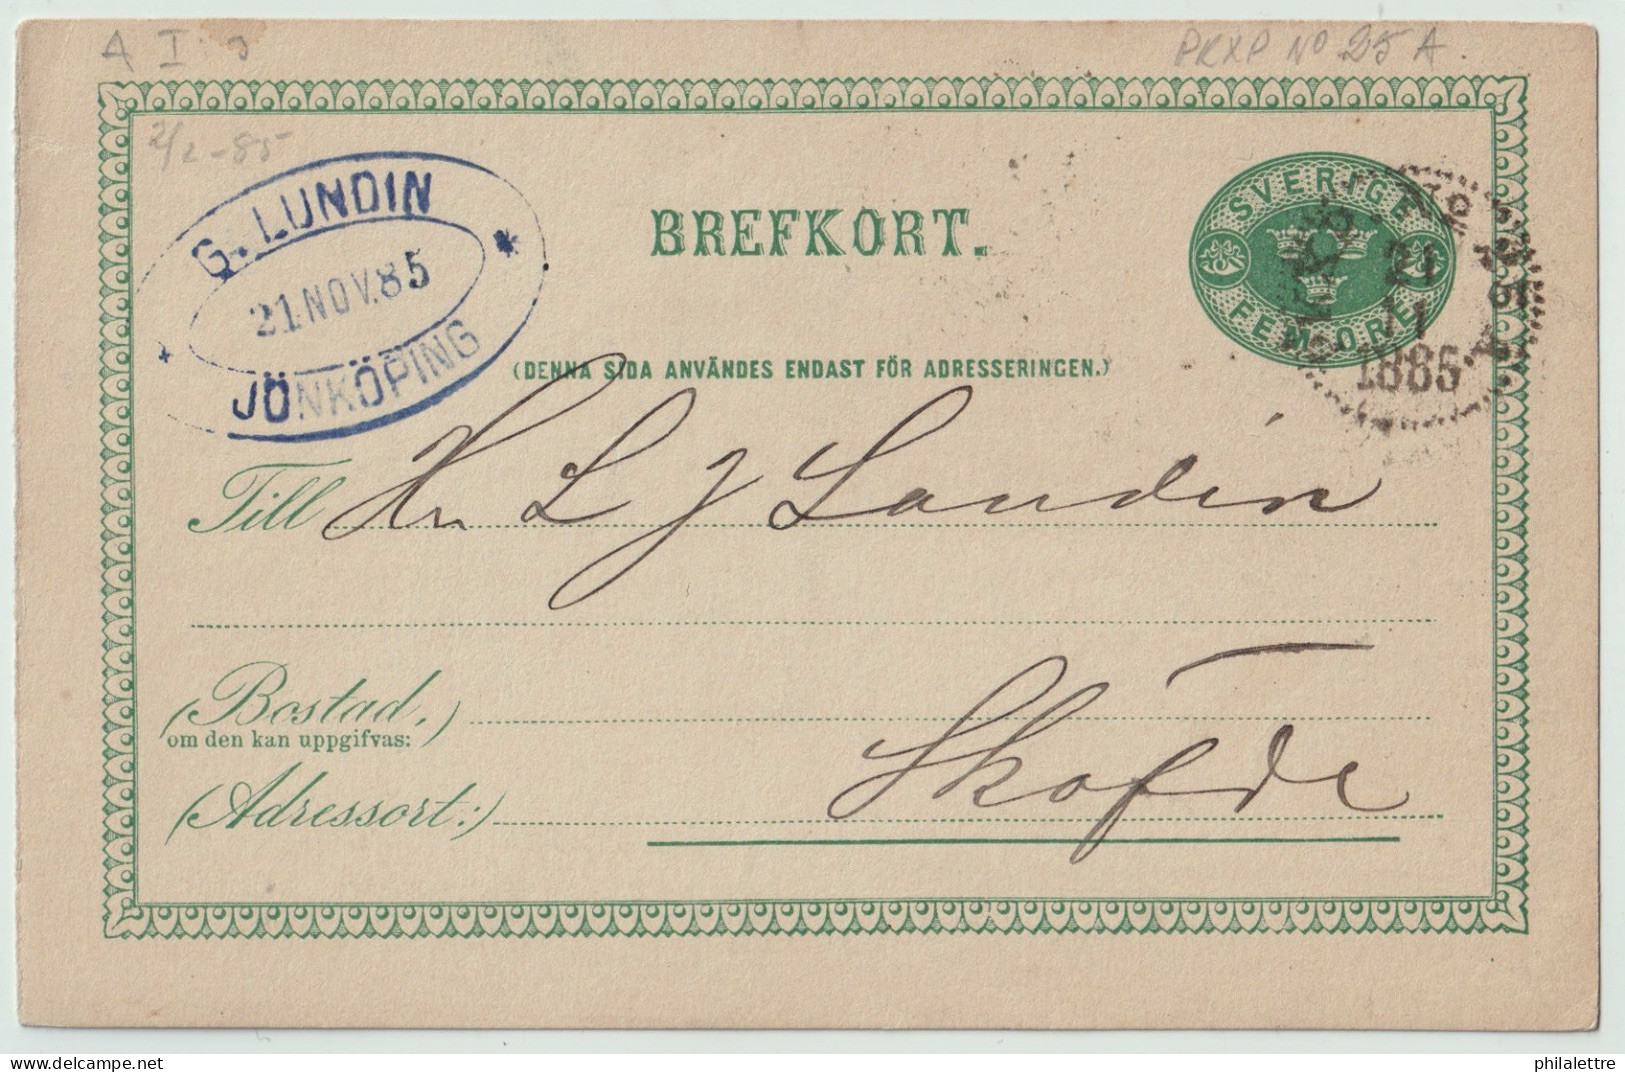 A I
PKXP No 25 A.
2/2-85
G. LUNDIN
21 NOV. 85
JÖNKÖPING
BREFKORT.
SVERIGE
FEM ÖRE
21
11
1885
(DENNA SIDA ANVÄNDES ENDAST FÖR ADRESSERINGEN.)
Till Hr L J Lundin
(Bostad,)
om den kan uppgifvas:
(Adressort:) Sköfde
philalettre @ delcampe.net